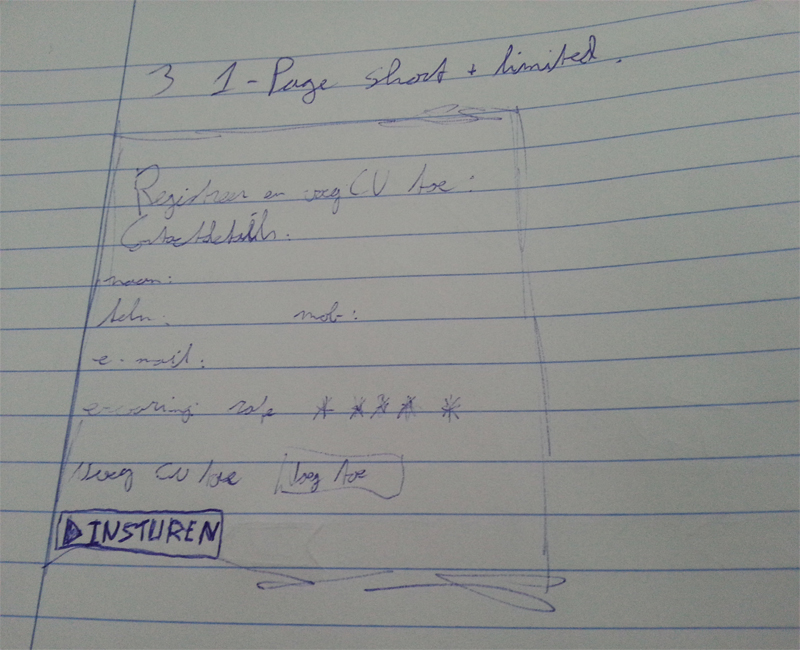 3 1-Page short + limited.
Registreer en voeg CV toe:
Contactdetails:
naam:
teln: mob:
e-mail:
ervaring
Voeg CV toe Voeg toe
INSTUREN